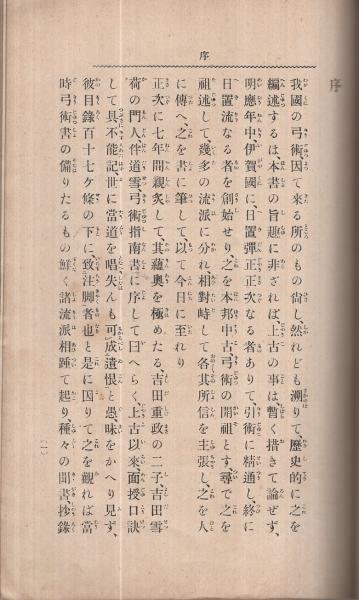 序
序
我國の弓術因て來る所のもの尙し、然れども溯りて、歷史的に之を
編述するは、本書の旨趣に非ざれば、上古の事は、暫く措きて論ぜず、
明應年中、伊賀國に、日置彈正正次なる者ありて、引術に精通し、終に
日置流なる者を創始せり、之を本邦中古、弓術の開祖とす、尋で之を
祖述して、幾多の流派に分れ相對峙して各其所信を主張し、之を人
に傳へ、之を書に筆して以て今日に至れり
正次に七年間親炙して、其蘊奧を極めたる、吉田重政の二子、吉田雪
荷の門人伴道雪、弓術指南書に序して曰へらく、上古以來面授口訣
して具不能記、世に當道を唱失んも可成遺恨と、愚昧をかへり見ず、
彼目錄百十七ケ條の下に、致注脚者也と、是に因りて之を觀れば、當
時弓術書の備りたるもの鮮く、諸流派相踵て起り、種々の聞書、抄錄
(一)